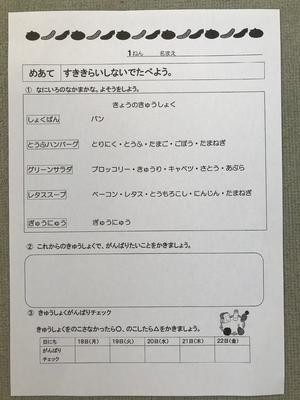 1ねん　名まえ
めあて　すききらいしないでたべよう。
① なにいろのなかまかな。よそうをしよう。
きょうのきゅうしょく
しょくぱん　パン
とうふハンバーグ　とりにく・とうふ・たまご・ごぼう・たまねぎ
グリーンサラダ　ブロッコリー・きゅうり・キャベツ・さとう・あぶら
レタススープ　ベーコン・レタス・とうもろこし・にんじん・たまねぎ
ぎゅうにゅう　ぎゅうにゅう
② これからのきゅうしょくで、がんばりたいことをかきましょう。
③ きゅうしょくがんばりチェック
きゅうしょくをのこさなかったら○、のこしたら△をかきましょう。
日にち　18日(月)　19日(火)　20日(水)　21日(木)　22日(金)
がんばり
チェック